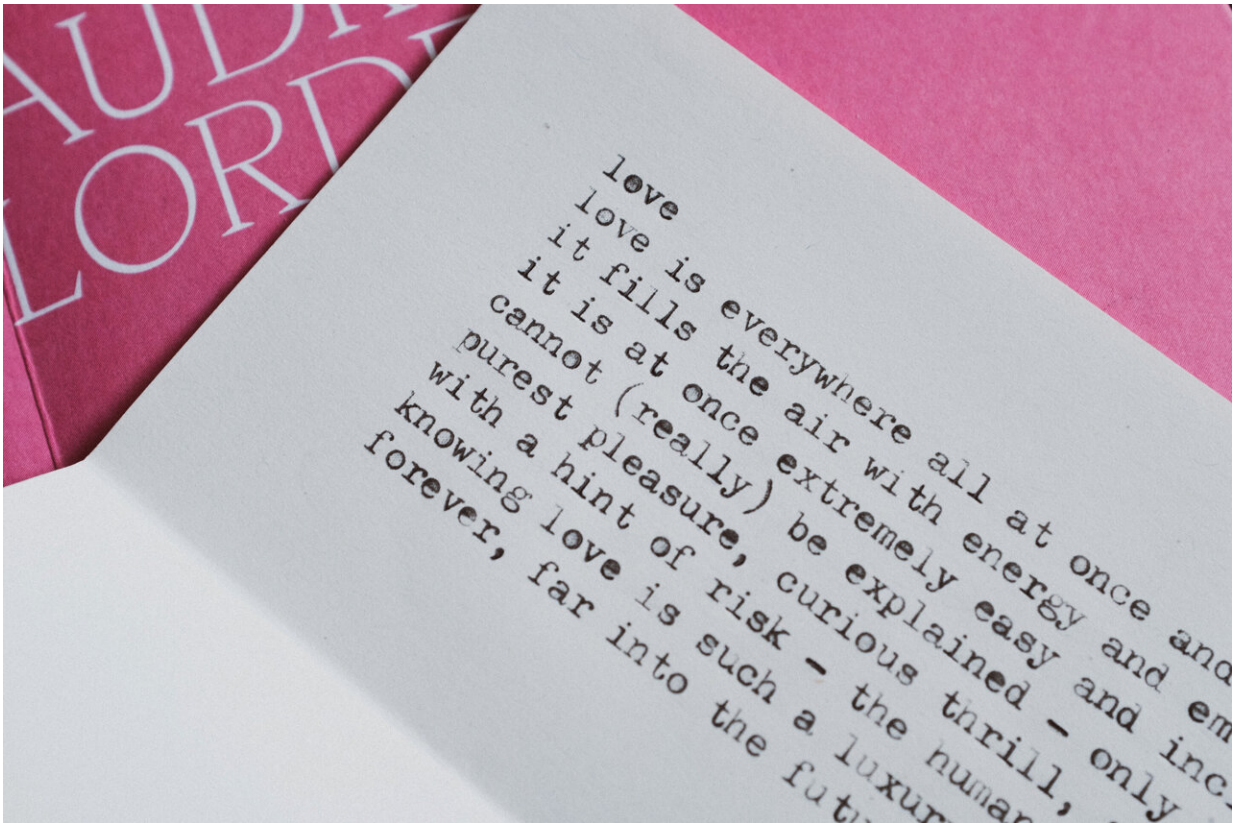 AUD
LORD
love
love is everywhere all at once and
it fills the air with energy and em
it is at once extremely easy and inc
cannot (really) be explained - only
purest pleasure, curious thrill,
with a hint of risk - the human
knowing love is such a luxur
forever, far into the futu